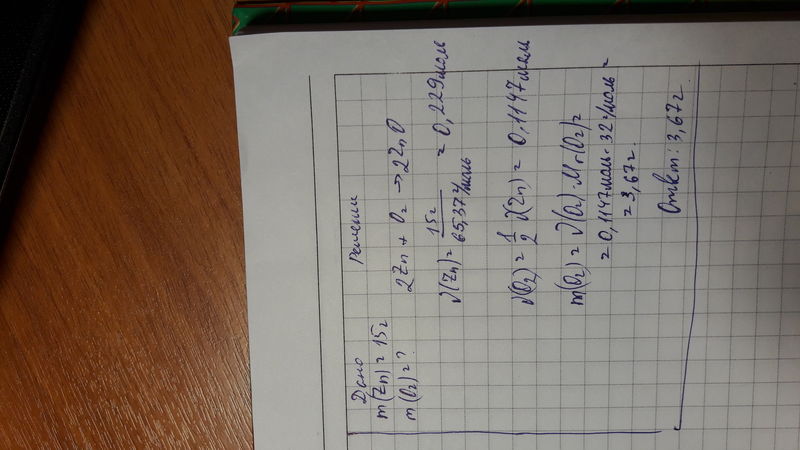 Дано
m(Zn) = 15г
m(O₂) = ?
Решение
2Zn + O₂ → 2ZnO
ν(Zn) = 15г / 65,37 г/моль = 0,229 моль
ν(O₂) = 1/2 ν(Zn) = 0,1147 моль
m(O₂) = ν(O₂) · Mr(O₂) =
= 0,1147 моль · 32 г/моль =
= 3,67г.
Ответ: 3,67г